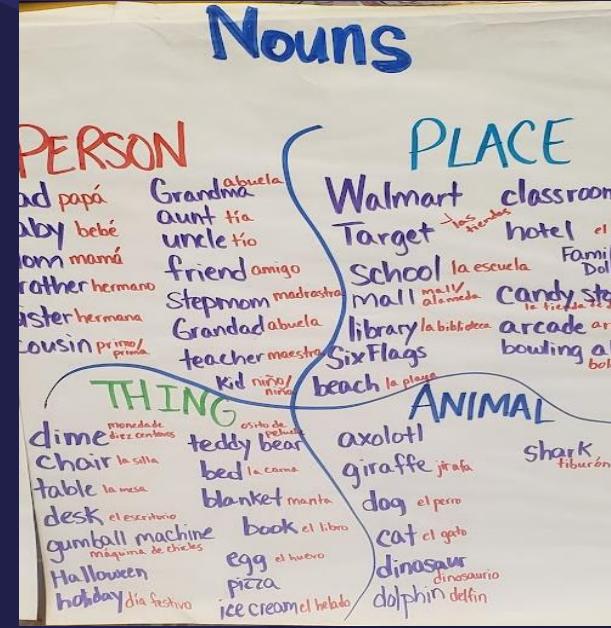 Nouns
PERSON
ad papá
aby bebé
om mamá
rother hermano
ister hermana
cousin primo/prima
Grandma abuela
aunt tía
uncle tío
friend amigo
Stepmom madrastra
Grandad abuela
teacher maestra
kid niño/niña
PLACE
Walmart
Target las tiendas
school la escuela
mall mall/alameda
library la biblioteca
Six Flags
beach la playa
classroom
hotel el
Famil
Dol
candy sto
la tienda de
arcade ar
bowling al
bol
THING
dime moneda de diez centavos
chair la silla
table la mesa
desk el escritorio
gumball machine
máquina de chicles
Halloween
holiday día festivo
teddy bear osito de peluche
bed la cama
blanket manta
book el libro
egg el huevo
pizza
ice cream el helado
ANIMAL
axolotl
giraffe jirafa
dog el perro
cat el gato
dinosaur
dinosaurio
dolphin delfin
shark
tiburón